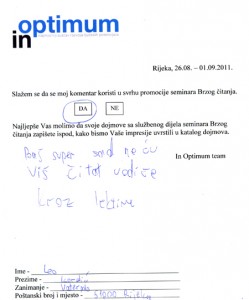 in optimum
Rijeka, 26.08. – 01.09.2011.
Slažem se da se moj komentar koristi u svrhu promocije seminara Brzog čitanja.
DA NE
Najljepše Vas molimo da svoje dojmove sa službenog dijela seminara Brzog
čitanja zapišete ispod, kako bismo Vaše impresije uvrstili u katalog dojmova.
Baš super sad neću
In Optimum team
viš čitat vodiče
kroz letime
Ime - Leo
Prezime -
Zanimanje -
Poštanski broj i mjesto - 51000 Rijeka